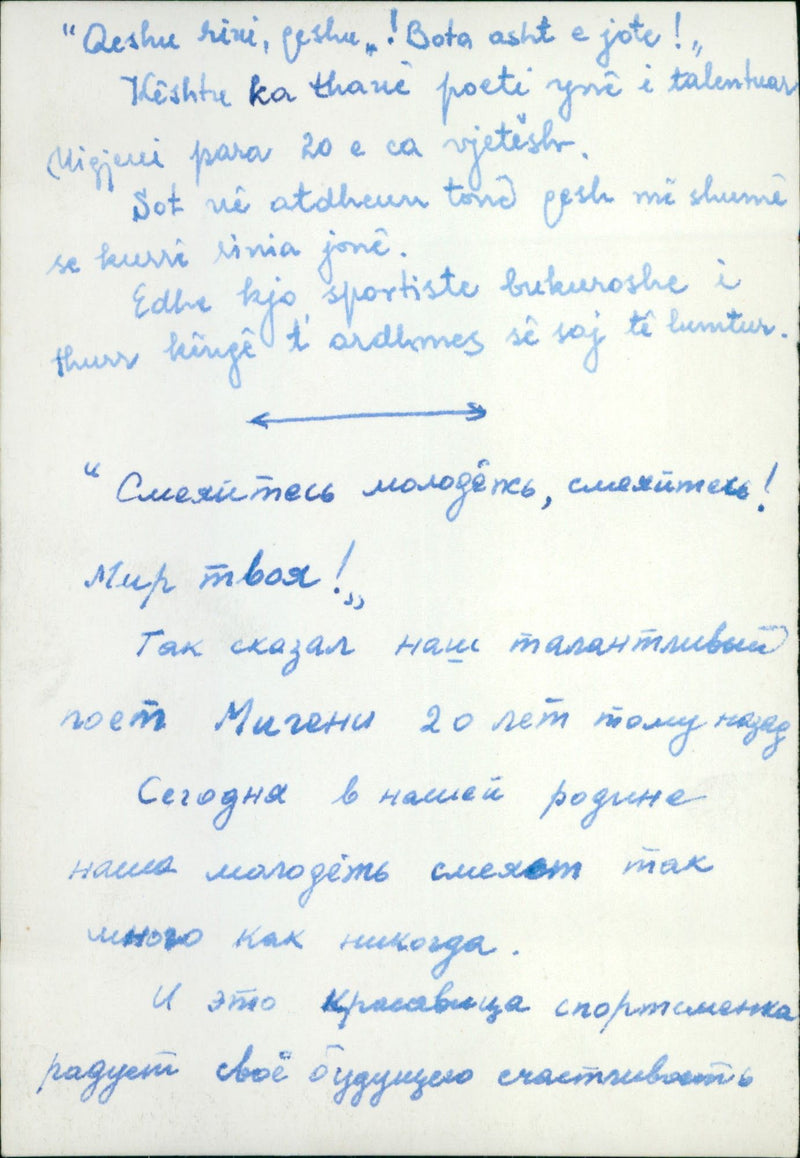 "Qeshu rini, qeshu„! Bota asht e jote!„
Kështu ka thanë poeti ynë i talentuar
Migjeni para 20 e ca vjetësh.
Sot në atdheun tonë qesh më shumë
se kurrë rinia jonë.
Edhe kjo sportiste bukuroshe i
thurr këngë t'ardhmes së saj të lumtur.
"Смеяйтесь молодёжь, смеяйтесь!
Мир твоя!„
Так сказал наш талантливый
поет Мигени 20 лет тому назад
Сегодня в нашей родине
наша молодёжь смеяет так
много как никогда.
И это красавица спортсменка
радует своё будущею счастливость